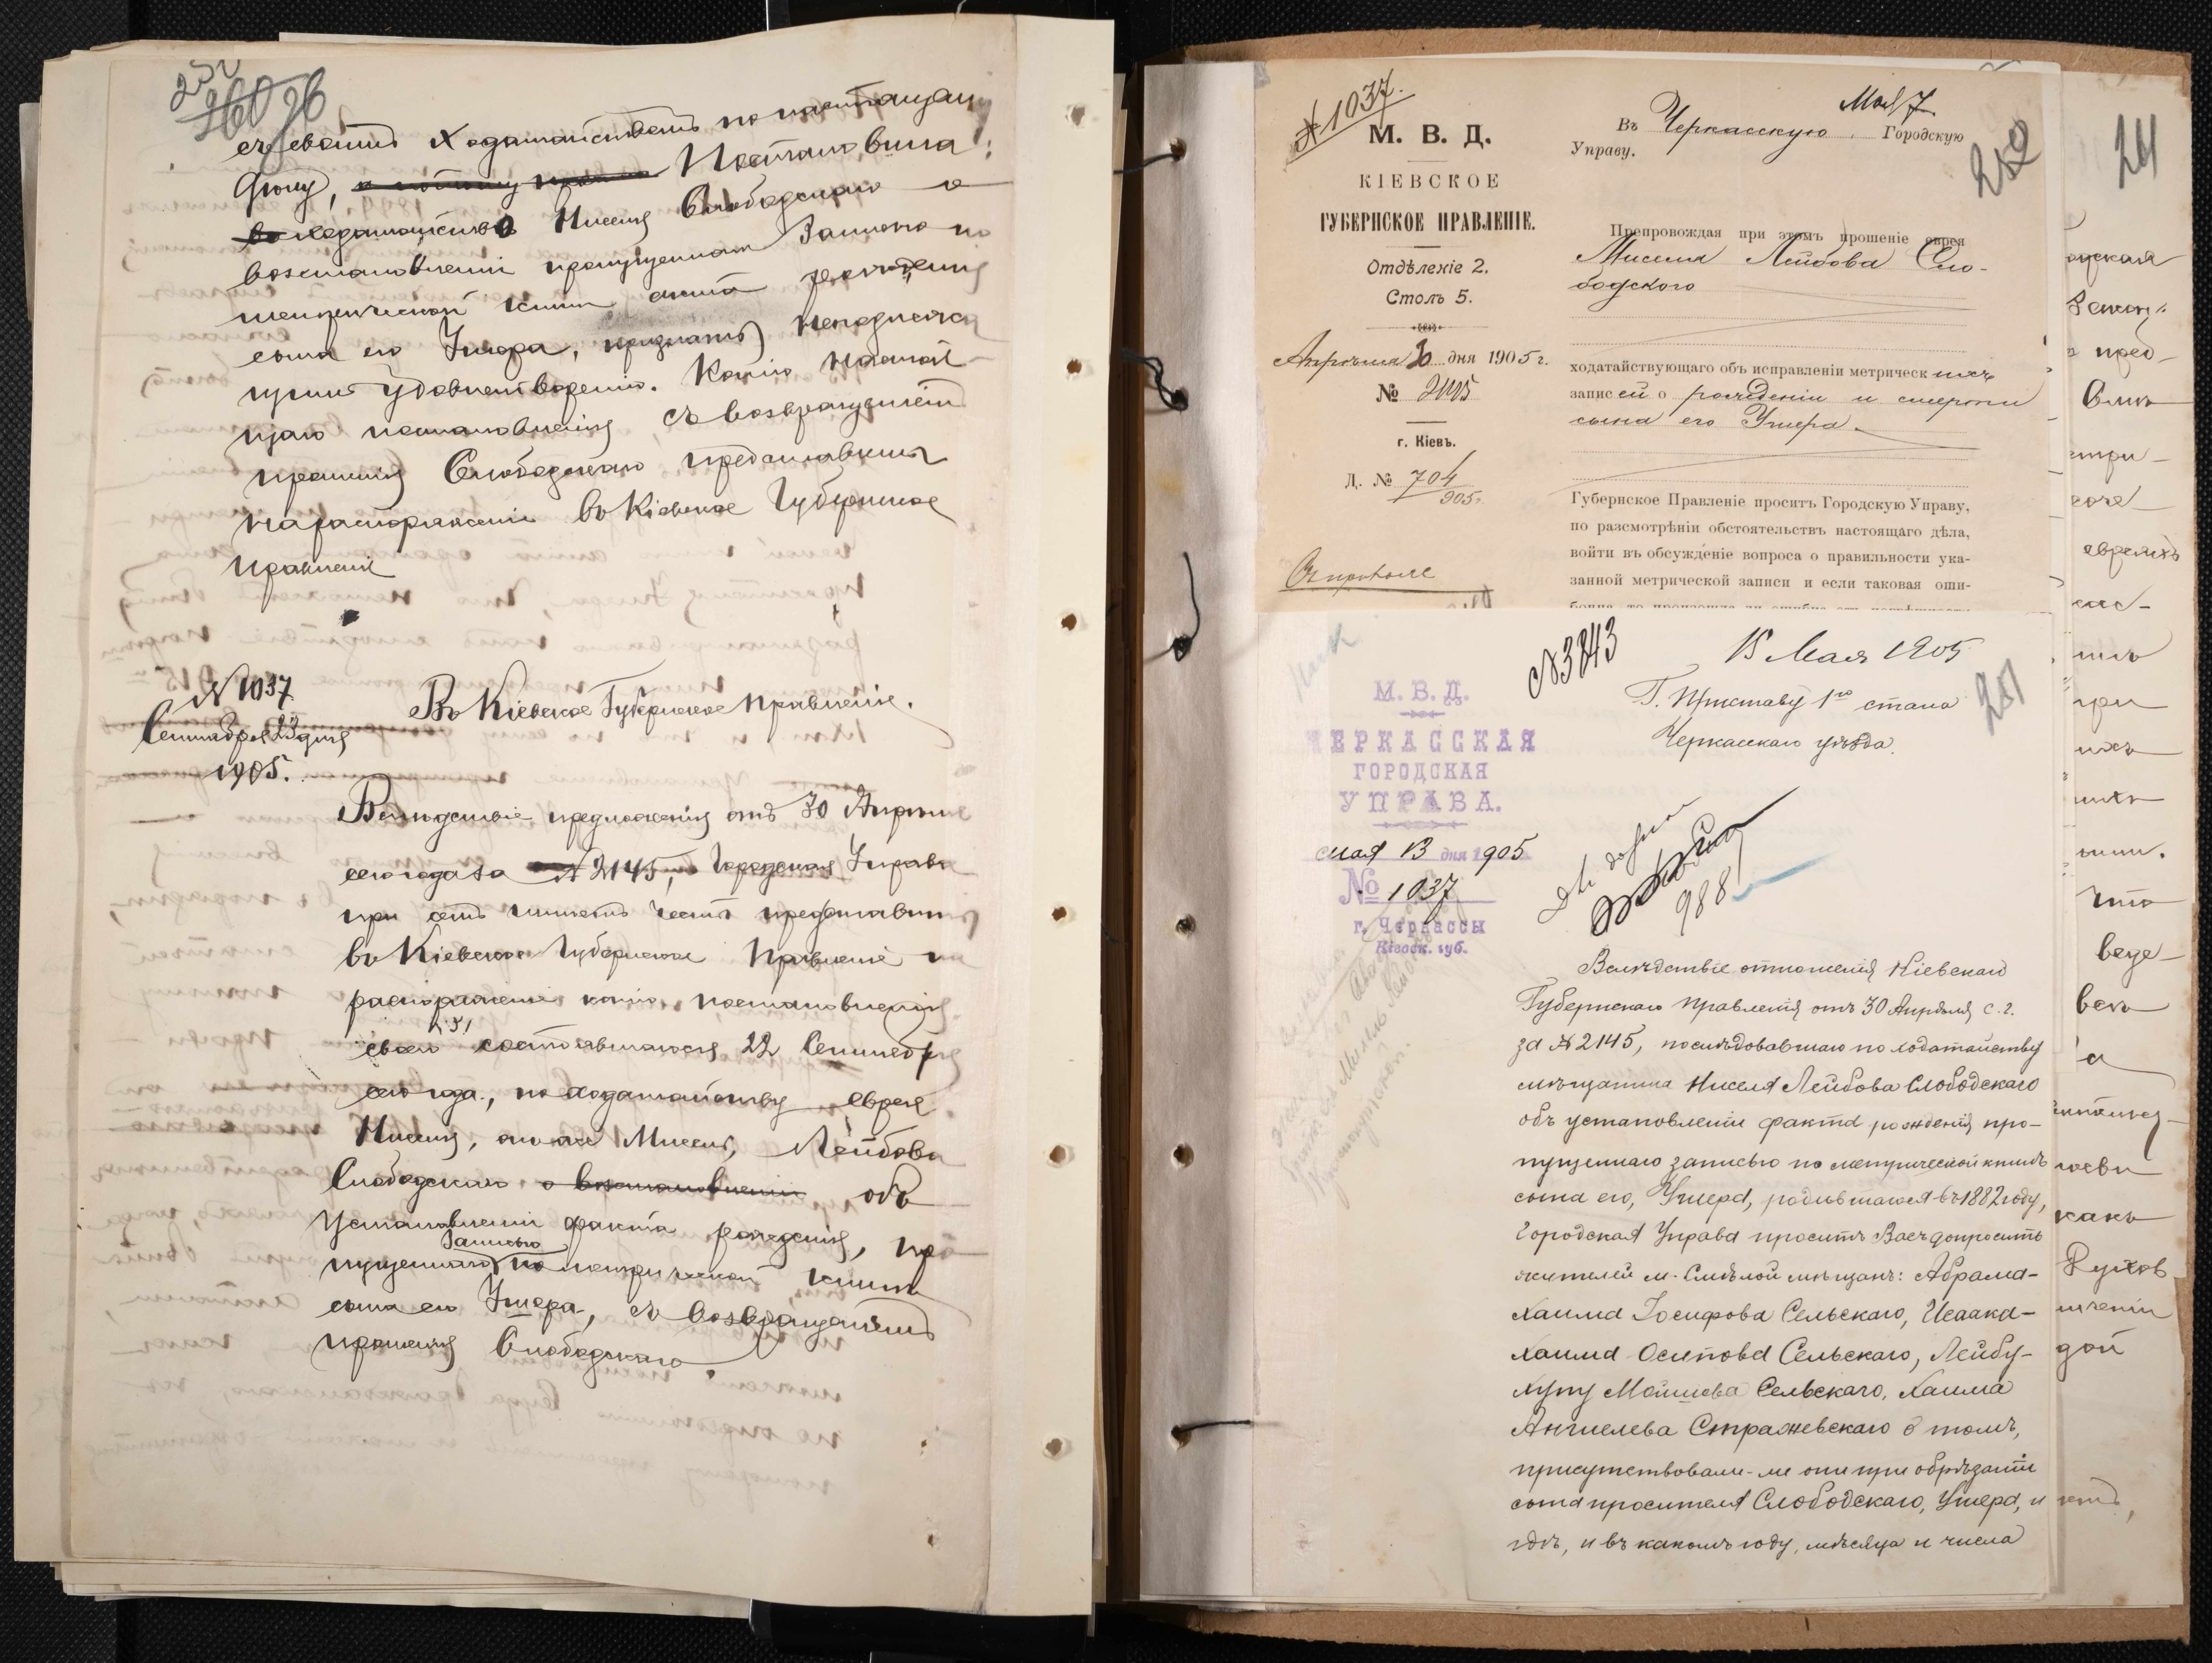 250
260 об
съ своимъ ходатайствомъ по настоящему
дѣлу, Постановила:
ходатайство Нисселя Слободского о
возстановленіи пропущеннаго записью по
метрической книгѣ акта рожденія
сына его Ушера, признать неподлежа
щимъ удовлетворенію. Копію настоя
щаго постановленія съ возвращеніемъ
прошенія Слободского представить
на распоряженіе въ Кіевское Губернское
Правленіе
N 1037
Сентября 23 дня
1905.
Въ Кіевское Губернское Правленіе.
Вслѣдствіе предложенія отъ 30 Апрѣля
сего года за N 2145, Городская Управа
при семъ имѣетъ честь представить
въ Кіевское Губернское Правленіе на
распоряженіе копію постановленія
своего состоявшагося 22 Сентября
сего года, по ходатайству еврея
Нисселя, онъ же Миссель, Лейбова
Слободского о возстановленіи объ
установленіи факта рожденія, про
пущеннаго записью по метрической книгѣ
сына его Ушера, съ возвращеніемъ
прошенія Слободского.
N 1037.
М. В. Д.
КІЕВСКОЕ
ГУБЕРНСКОЕ ПРАВЛЕНІЕ.
Отдѣленіе 2.
Столъ 5.
Апрѣля 30 дня 1905 г.
№ 2145
г. Кіевъ.
Д. № 704
905.
Мая 7
Въ Черкасскую Городскую
Управу.
252
Препровождая при этомъ прошеніе еврея
Мисселя Лейбова Сло-
бодского
ходатайствующаго объ исправленіи метрическихъ
записей о рожденіи и смерти
сына его Ушера
Губернское Правленіе проситъ Городскую Управу,
по разсмотрѣніи обстоятельствъ настоящаго дѣла,
войти въ обсужденіе вопроса о правильности ука-
занной метрической записи и если таковая оши-
М. В. Д.
ЧЕРКАССКАЯ
ГОРОДСКАЯ
УПРАВА.
мая 13 дня 1905
№ 1037
г. Черкассы
Кіевск. губ.
N 3843
15 Мая 1905
251
Г. Приставу 1го стана
Черкасскаго уѣзда.
988
Вслѣдствіе отношенія Кіевскаго
Губернскаго Правленія отъ 30 Апрѣля с. г.
за N 2145, послѣдовавшаго по ходатайству
мѣщанина Нисселя Лейбова Слободскаго
объ установленіи факта рожденія про-
пущеннаго записью по метрической книгѣ
сына его, Ушера, родившагося въ 1882 году,
Городская Управа проситъ Васъ допросить
жителей м. Смѣлой мѣщанъ: Абрама-
Хаима Іосифова Сельскаго, Исаака-
Хаима Осипова Сельскаго, Лейбу-
Хуну Мошиева Сельскаго, Хаима
Анчелева Стражевскаго о томъ,
присутствовали-ли они при обрѣзаніи
сына просителя Слободскаго, Ушера, и
гдѣ, и въ какомъ году, мѣсяца и числа
24
пред-
евреяхъ
при
что
веде-
какъ
дой